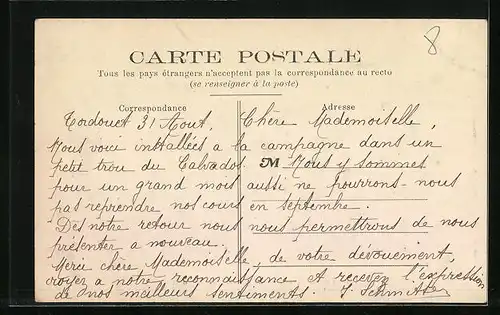 8
CARTE POSTALE
Tous les pays étrangers n'acceptent pas la correspondance au recto
(se renseigner à la poste)
Correspondance
Adresse
Tordouet 31 Aout, Chère Mademoiselle,
Nous voici installées a la campagne dans un
petit trou du Calvados M Nous y sommes
pour un grand mois aussi ne pourrons-nous
pas reprendre nos cours en septembre.
Des notre retour nous nous permettrons de nous
présenter a nouveau.
Merci chère Mademoiselle, de votre dévouement,
croyez a notre reconnaissance et recevez l'expression
de nos meilleurs sentiments. J. Schmitter